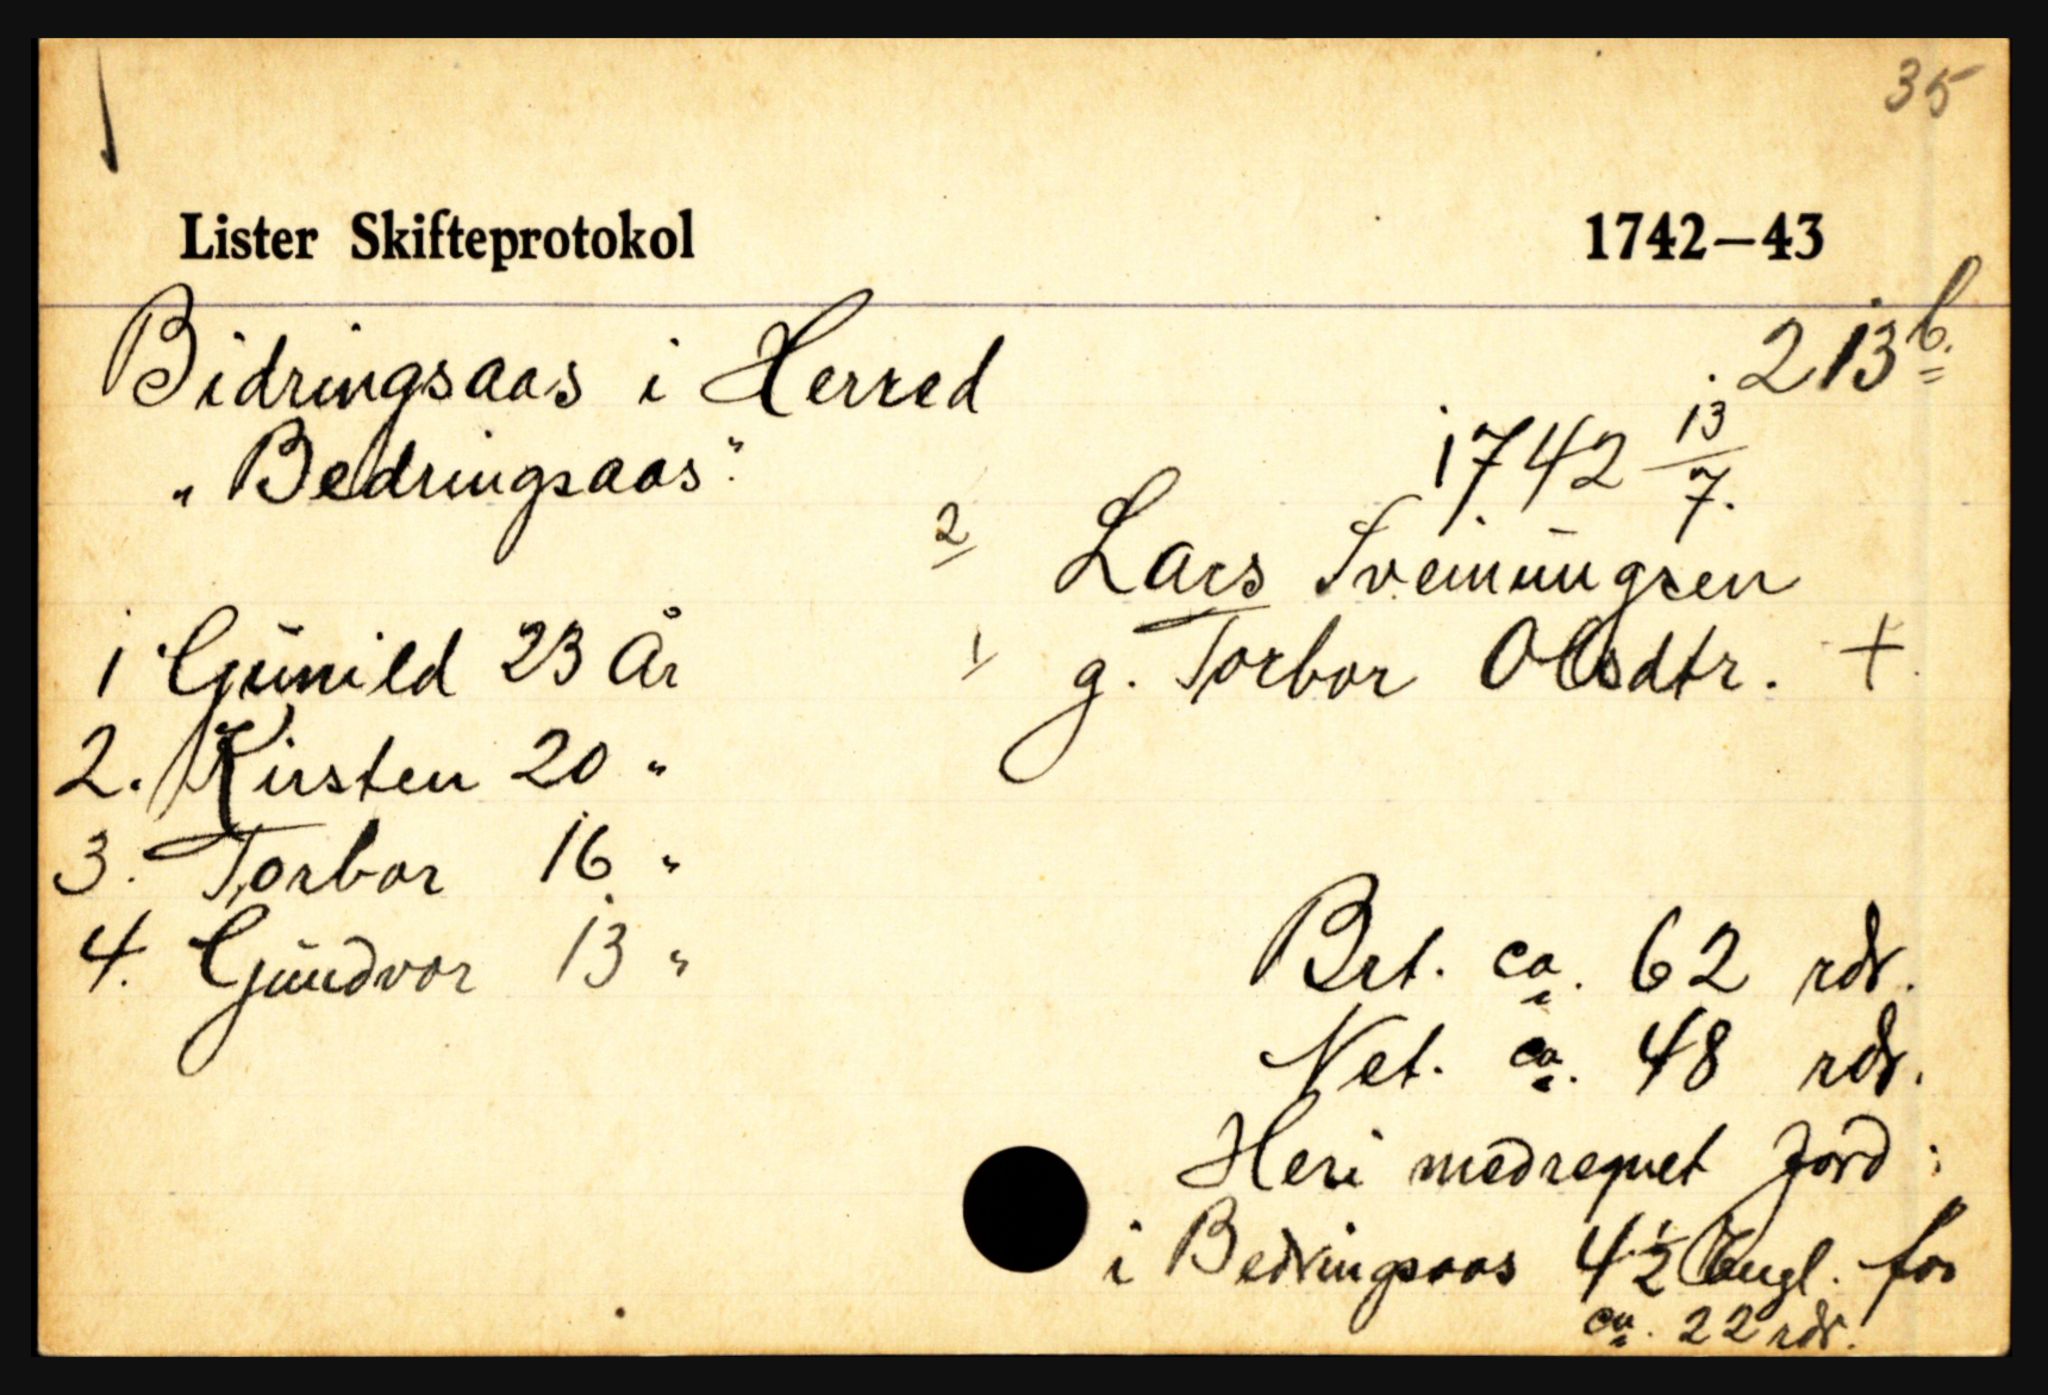 35
Lister Skifteprotokol 1742–43
Bidringsaas i Herred 213b.
„Bedringsaas" 1742 13/7.
2 Lars Sveinungsen
1 Gunild 23 År 1/ g. Torbor Olsdtr. +
2. Kirsten 20 "
3. Torbor 16 "
4. Gundvor 13 "
Brt. ca. 62 rdr.
Net. ca. 48 rdr.
Heri medregnet Jord:
i Bedringsaas 4½ Engl. for
ca. 22 rdr.